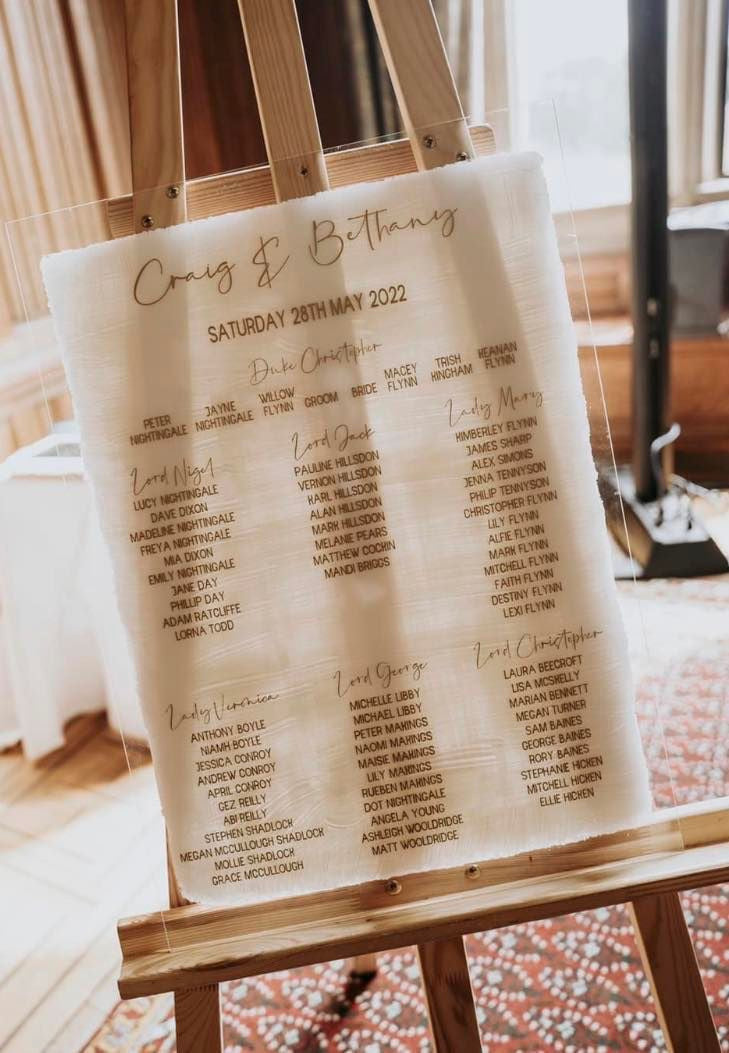 Craig & Bethany
SATURDAY 28TH MAY 2022
Duke Christopher
PETER NIGHTINGALE
JAYNE NIGHTINGALE
WILLOW FLYNN
GROOM
BRIDE
MACEY FLYNN
TRISH HINGHAM
KEANAN FLYNN
Lord Nigel
LUCY NIGHTINGALE
DAVE DIXON
MADELINE NIGHTINGALE
FREYA NIGHTINGALE
MIA DIXON
EMILY NIGHTINGALE
JANE DAY
PHILLIP DAY
ADAM RATCLIFFE
LORNA TODD
Lord Jack
PAULINE HILLSDON
VERNON HILLSDON
KARL HILLSDON
ALAN HILLSDON
MARK HILLSDON
MELANIE PEARS
MATTHEW COCKIN
MANDI BRIGGS
Lady Mary
KIMBERLEY FLYNN
JAMES SHARP
ALEX SIMONS
JENNA TENNYSON
PHILIP TENNYSON
CHRISTOPHER FLYNN
LILY FLYNN
ALFIE FLYNN
MARK FLYNN
MITCHELL FLYNN
FAITH FLYNN
DESTINY FLYNN
LEXI FLYNN
Lady Veronica
ANTHONY BOYLE
NIAMH BOYLE
JESSICA CONROY
ANDREW CONROY
APRIL CONROY
GEZ REILLY
ABI REILLY
STEPHEN SHADLOCK
MEGAN MCCULLOUGH SHADLOCK
MOLLIE SHADLOCK
GRACE MCCULLOUGH
Lord George
MICHELLE LIBBY
MICHAEL LIBBY
PETER MAKINGS
NAOMI MAKINGS
MAISIE MAKINGS
LILY MAKINGS
RUEBEN MAKINGS
DOT NIGHTINGALE
ANGELA YOUNG
ASHLEIGH WOOLDRIDGE
MATT WOOLDRIDGE
Lord Christopher
LAURA BEECROFT
LISA MCSKELLY
MARIAN BENNETT
MEGAN TURNER
SAM BAINES
GEORGE BAINES
RORY BAINES
STEPHANIE HICKEN
MITCHELL HICKEN
ELLIE HICKEN